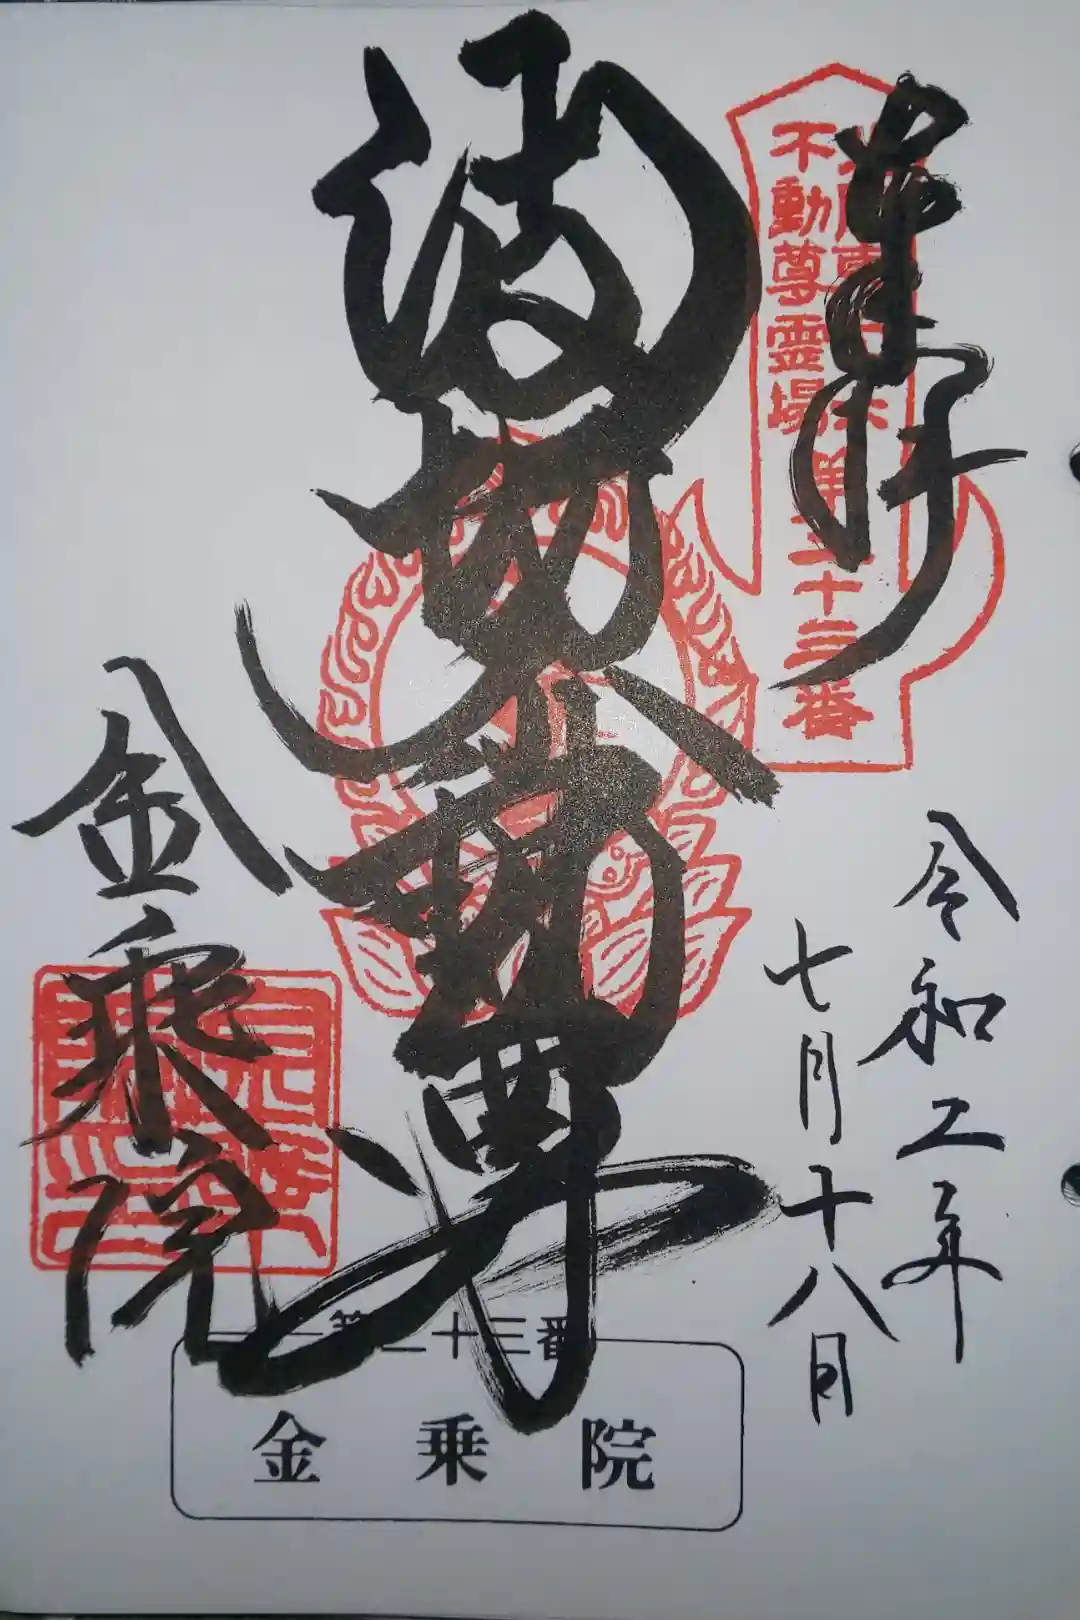 奉拝
不動尊霊場
第二十三番
波切不動尊
令和二年
七月十八日
金乗院
第二十三番
金乗院